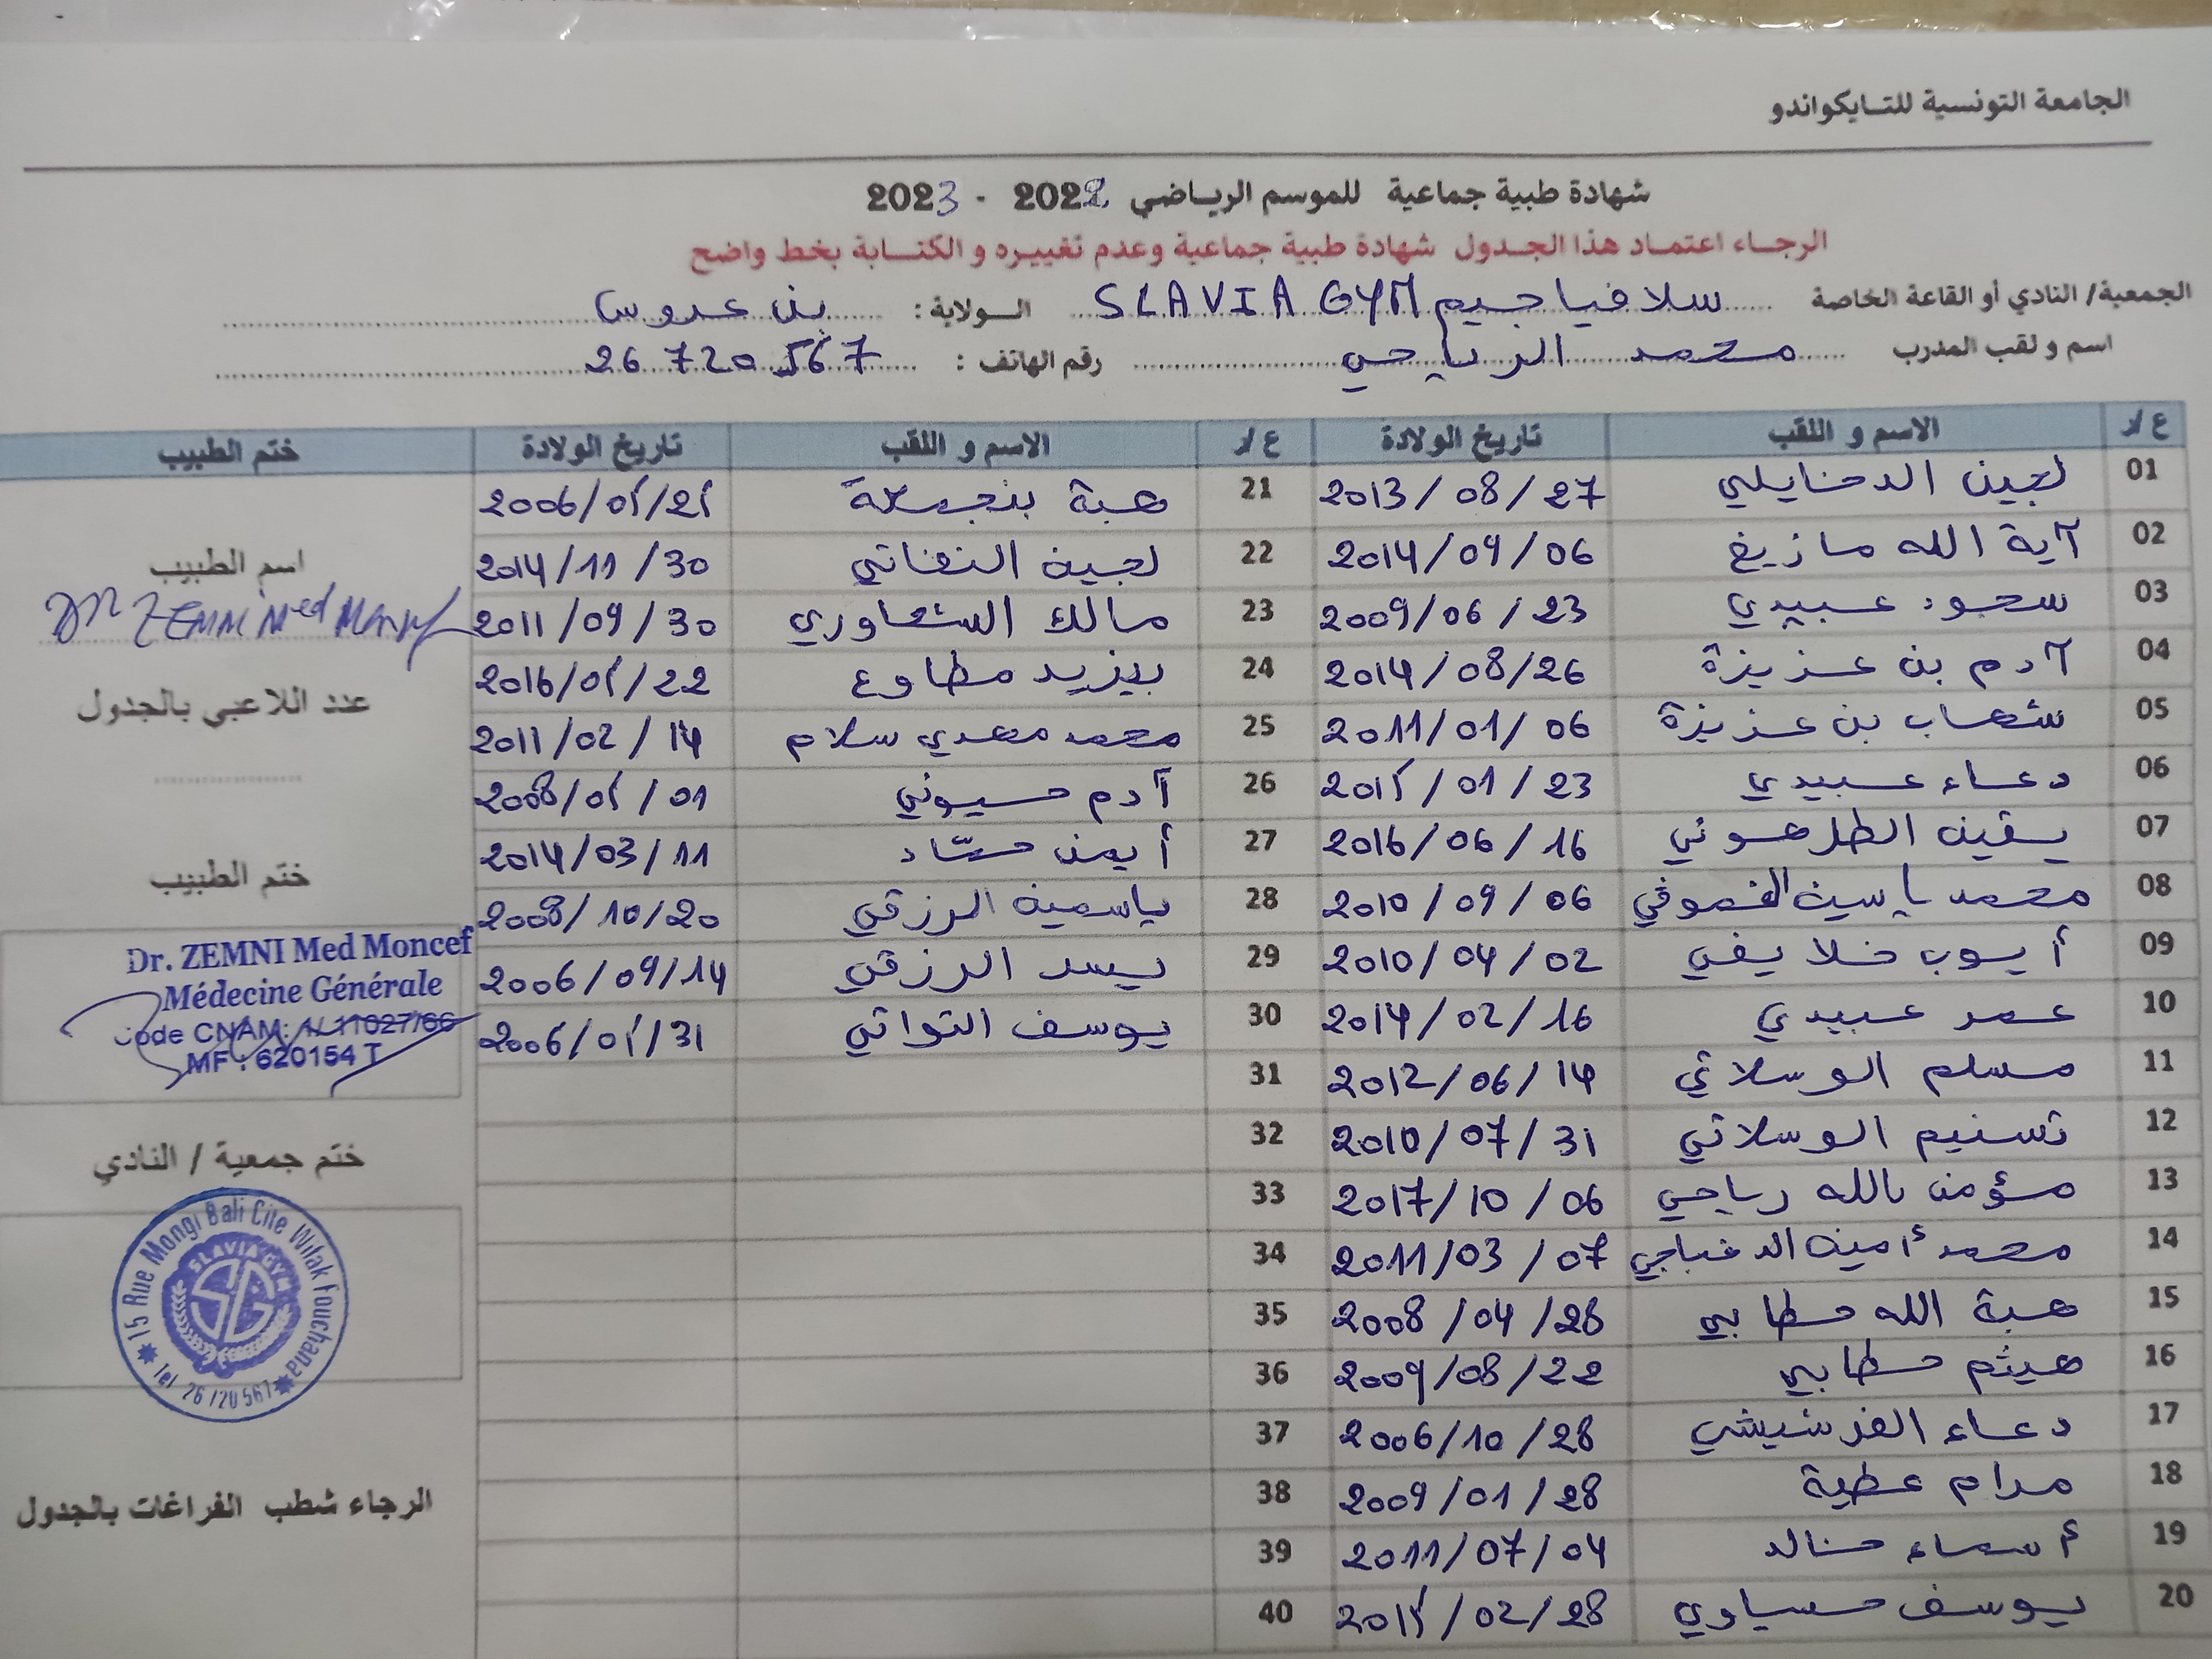 الجامعة التونسية للتايكواندو
شهادة طبية جماعية للموسم الرياضي 2022 - 2023
الرجاء اعتماد هذا الجدول شهادة طبية جماعية وعدم تغييره و الكتابة بخط واضح
الجمعية/ النادي أو القاعة الخاصة سلافيا جيم SLAVIA GYM الولاية: بن عروس
اسم و لقب المدرب محمد الرياحي رقم الهاتف: 26 720 567
ع/ر الاسم و اللقب تاريخ الولادة ع/ر الاسم و اللقب تاريخ الولادة ختم الطبيب
01 لجين الدخايلي 2013/08/27
02 آية الله مازيغ 2014/04/06
03 سجود عبيدي 2009/06/23
04 آدم بن عزيزة 2014/08/26
05 شهاب بن عزيزة 2011/01/06
06 دعاء عبيدي 2015/01/23
07 يقين الطرهوني 2016/06/16
08 محمد ياسين 2010/09/06
09 أيوب خلايفي 2010/04/02
10 عمر عبيدي 2014/02/16
11 مسلم الوسلاتي 2012/06/14
12 تسنيم الوسلاتي 2010/07/31
13 مؤمن بالله رياحي 2017/10/06
14 محمد أمين الدغباجي 2011/03/07
15 هبة الله حطابي 2008/04/28
16 هيثم حطابي 2009/08/22
17 دعاء الفرشيشي 2006/10/28
18 مرام عطية 2009/01/28
19 أسماء خالد 2011/07/04
20 يوسف عيساوي 2015/02/28
21 هبة بنجمعة 2006/05/25
22 لجين النفاتي 2014/11/30
23 مالك الشعاوري 2011/09/30
24 يزيد مطاوع 2016/05/22
25 محمد مهدي سلام 2011/02/14
26 آدم حسيوني 2008/05/01
27 أيمن 2014/03/11
28 ياسمين الرزقي 2008/10/20
29 يسر الرزقي 2006/09/14
30 يوسف التواتي 2006/05/31
31
32
33
34
35
36
37
38
39
40
اسم الطبيب
Dr ZEMNI Med Moncef
عدد اللاعبي بالجدول
ختم الطبيب
Dr. ZEMNI Med Moncef
Médecine Générale
Code CNAM: 1/11027/66
MF : 620154 T
ختم جمعية / النادي
15 Rue Mongi Bali Cite Wifak Fouchana
SLAVIA GYM
SG
Tel 26 720 567
الرجاء شطب الفراغات بالجدول